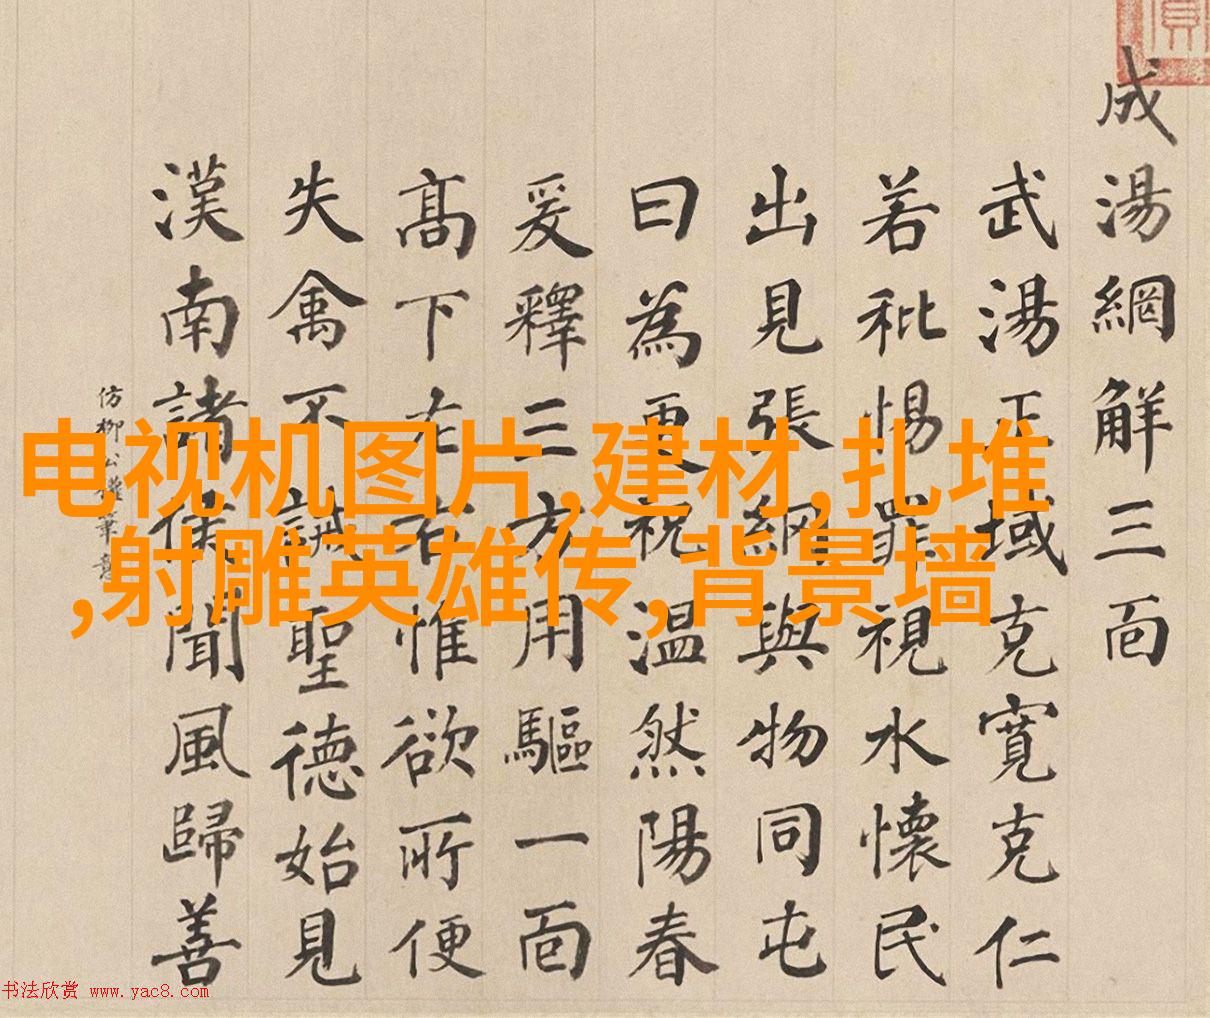 成湯網解三面
武湯正域克寬克仁
若秕惕罪視水懷民
出見張網與物同屯
曰為更祝温然陽春
爰釋三方用驅一面
髙下左右惟欲所便
失禽不誡聖德始見
漢南諸侯聞風歸善
仿柳公權筆意
电视机图片,建材,扎堆
,射雕英雄传,背景墙
书法欣赏 www.yac8.com